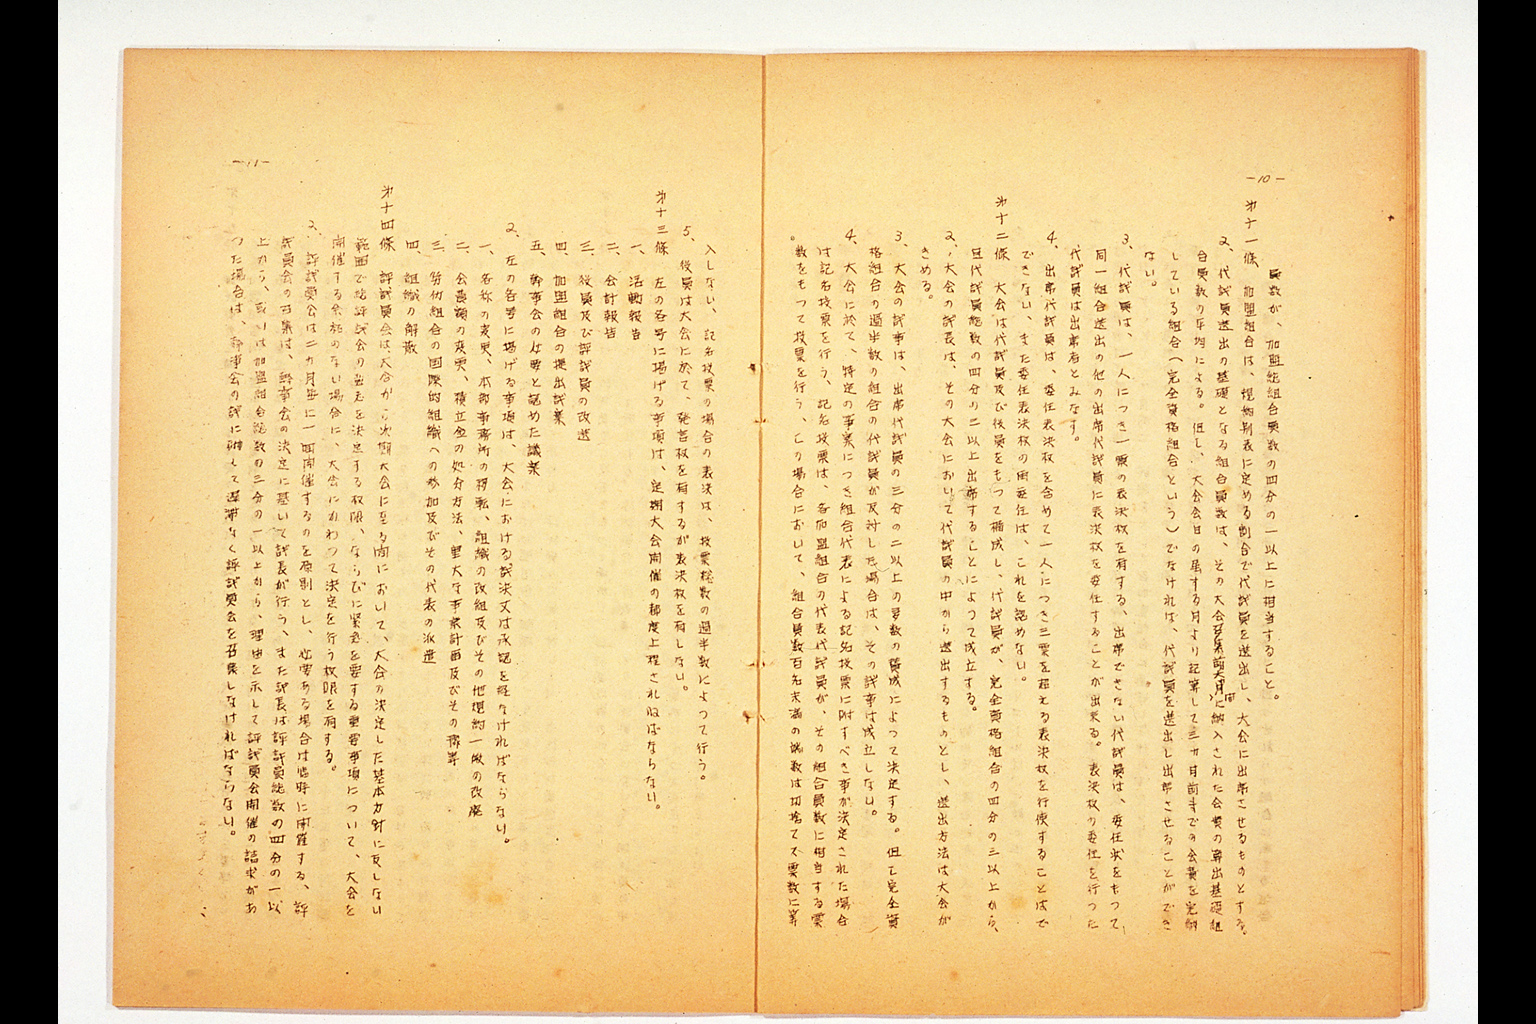 -10-
員数が、加盟総組合員数の四分の一以上に相当すること。
第十一條　加盟組合は、規約別表に定める割合で代議員を選出し、大会に出席させるものとする。
2、代議員選出の基礎となる組合員数は、その大会に納入された会費の算出基礎組
合員数の平均による。但し、大会会日の属する月より起算して三カ月前までの会費を完納
している組合（完全資格組合という）でなければ、代議員を選出し出席させることができ
ない。
3、代議員は、一人につき一票の表決权を有する、出席できない代議員は、委任状をもって、
同一組合选出の他の出席代議員に表決权を委任することが出来る。表決权の委任を行つた
代議員は出席者とみなす。
4、出席代議員は、委任表決权を含めて一人につき三票を超える表決权を行使することはで
できない、また委任表決权の再委任は、これを認めない。
第十二條　大会は代議員及び役員をもつて構成し、代議員が、完全資格組合の四分の三以上から、
且代議員総数の四分の三以上出席することによつて成立する。
2、大会の議長は、その大会において代議員の中から選出するものとし、選出方法は大会が
きめる。
3、大会の議事は、出席代議員の三分の二以上の多数の賛成によつて決定する。但し完全資
格組合の過半数の組合の代議員が反対した場合は、その議事は成立しない。
4、大会に於て、特定の事案につき組合代表による記名投票に附すべき事が決定された場合
は記名投票を行う、記名投票は、各加盟組合の代表代議員が、その組合員数に相当する票
数をもつて投票を行う、この場合において、組合員数百名未満の端数は切捨て票数に算
-11-
入しない、記名投票の場合の表決は、投票総数の過半数によつて行う。
5、役員は大会に於て、発言权を有するが表決权を有しない。
第十三條　左の各号に掲げる事項は、定期大会開催の都度上程されねばならない。
一、活動報告
二、会計報告
三、役員及び評議員の改選
四、加盟組合の提出議案
五、幹事会の必要と認めた議案
2、左の各号に掲げる事項は、大会における議決又は承認を経なければならない。
一、名称の変更、本部事務所の移転、組織の改組及びその他規約一般の改廃
二、会費額の変更、積立金の処分方法、重大な事業計画及びその予算
三、労仂組合の国際的組織への参加及びその代表の派遣
四、組織の解散
第十四條　評議員会は大会から次期大会に至る間において、大会の決定した基本方針に反しない
範囲で総評議会の意志を決定する权限、ならびに緊急を要する重要事項について、大会を
開催する余裕のない場合に、大会にかわつて決定を行う权限を有する。
2、評議員会は二カ月毎に一回開催するのを原則とし、必要ある場合は臨時に開催する、評
議員会の召集は、幹事会の決定に基いて議長が行う、また議長は評議員総数の四分の一以
上から、或いは加盟組合総数の三分の一以上から、理由を示して評議員会開催の請求があ
つた場合は、幹事会の議に附して遅滞なく評議員会を召集しなければならない。